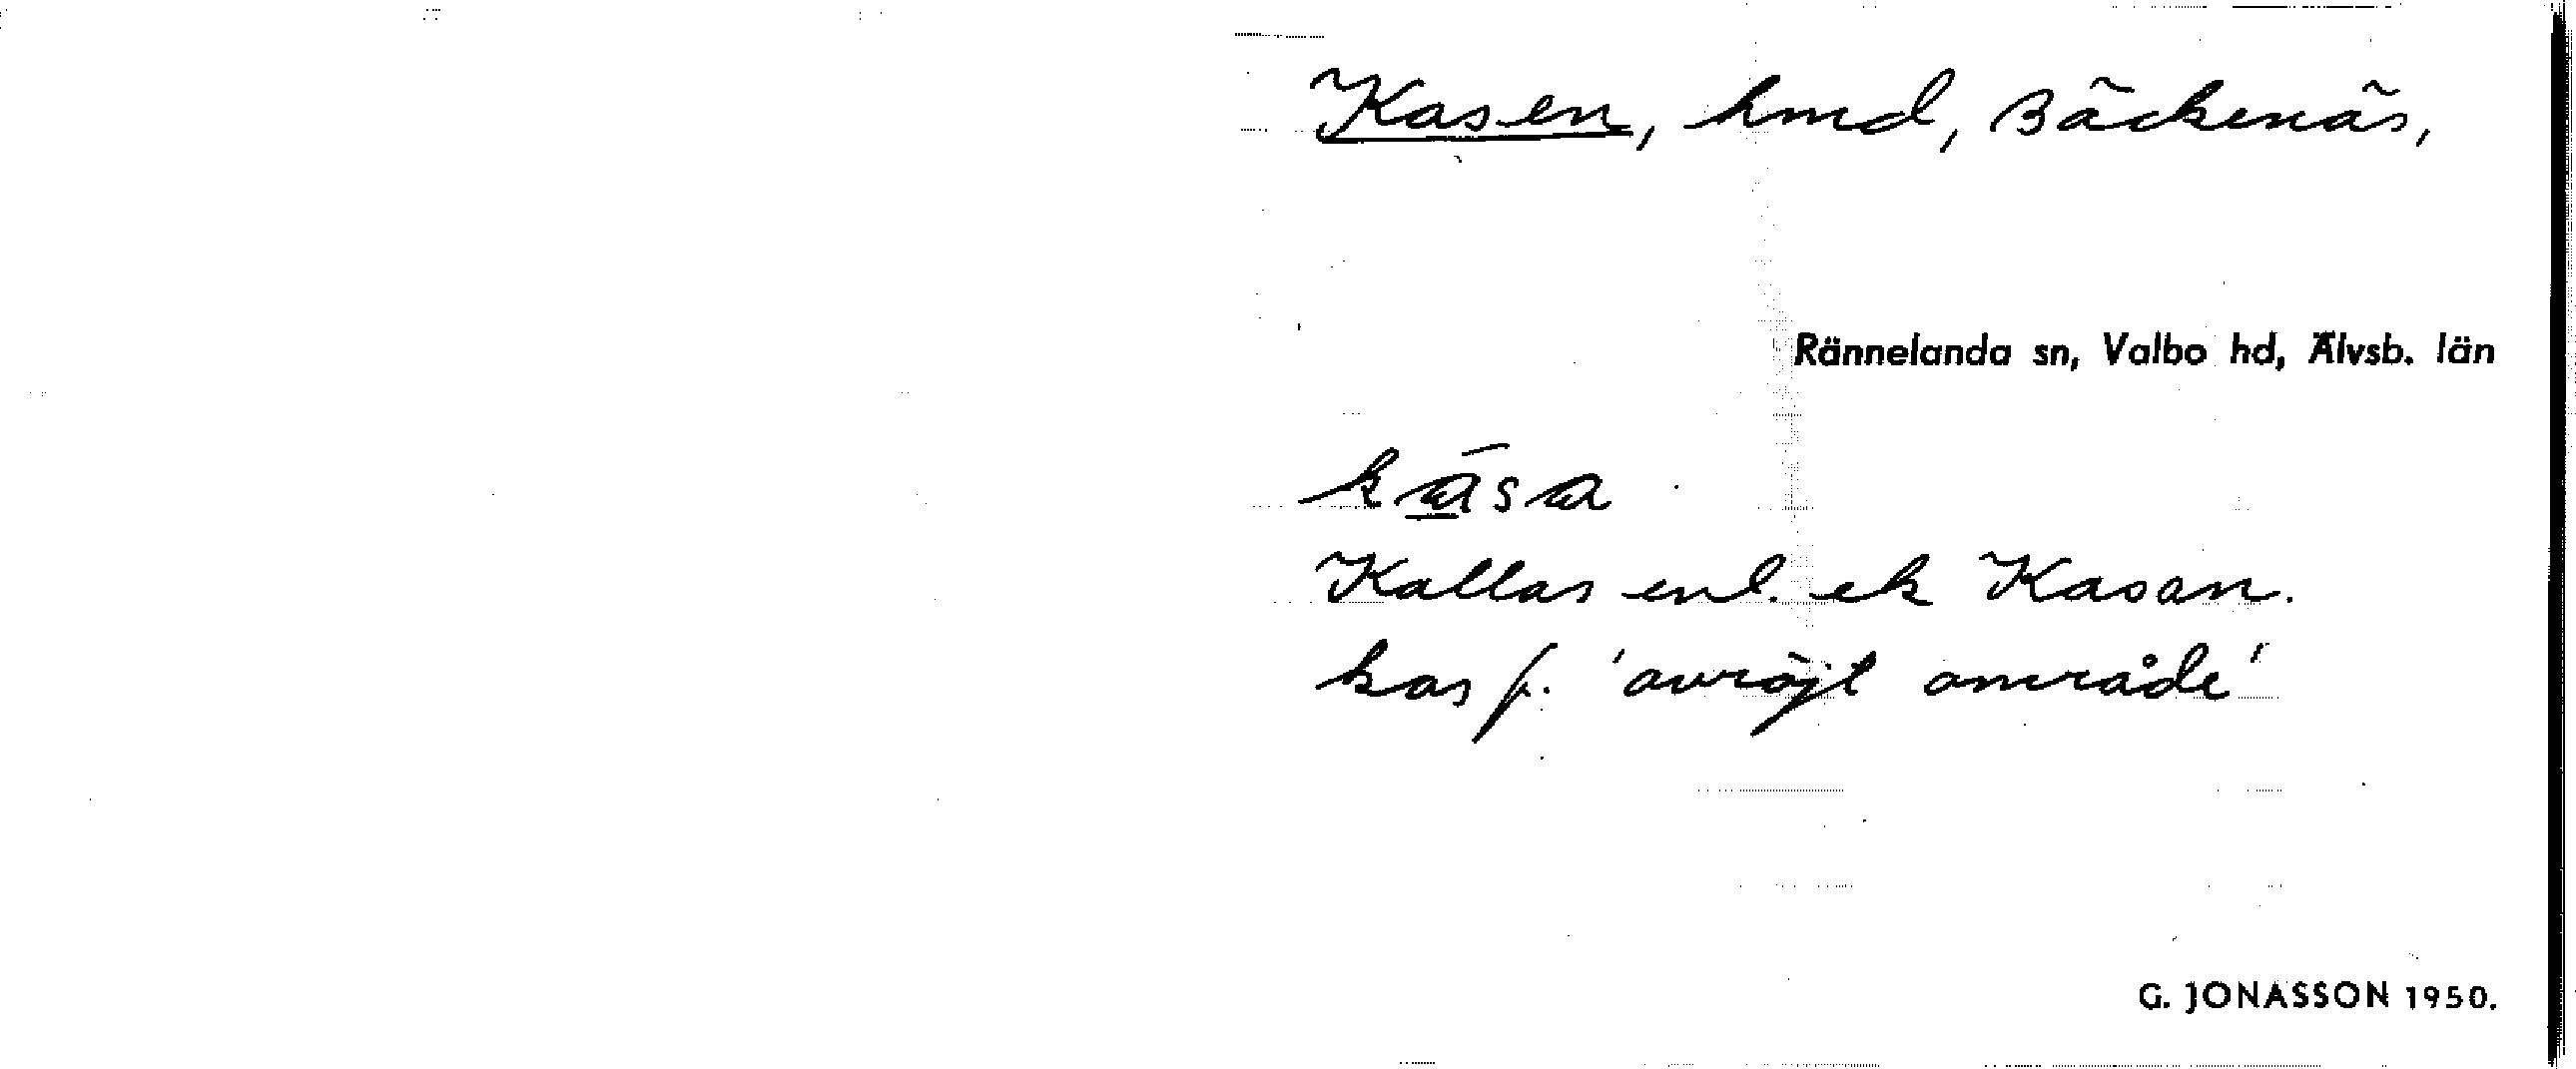 Kasen, hmd, Bäckenäs,
Rännelanda sn, Valbo hd, Älvsb. län
kāsa
Kallas enl. ek Kasan.
kas f. 'avröjt område'
G. JONASSON 1950.